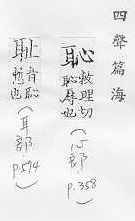 四聲篇海
恥 敕理切 恥辱也 (心部 p.358)
耻 音恥 慙也 (耳部 p.594)